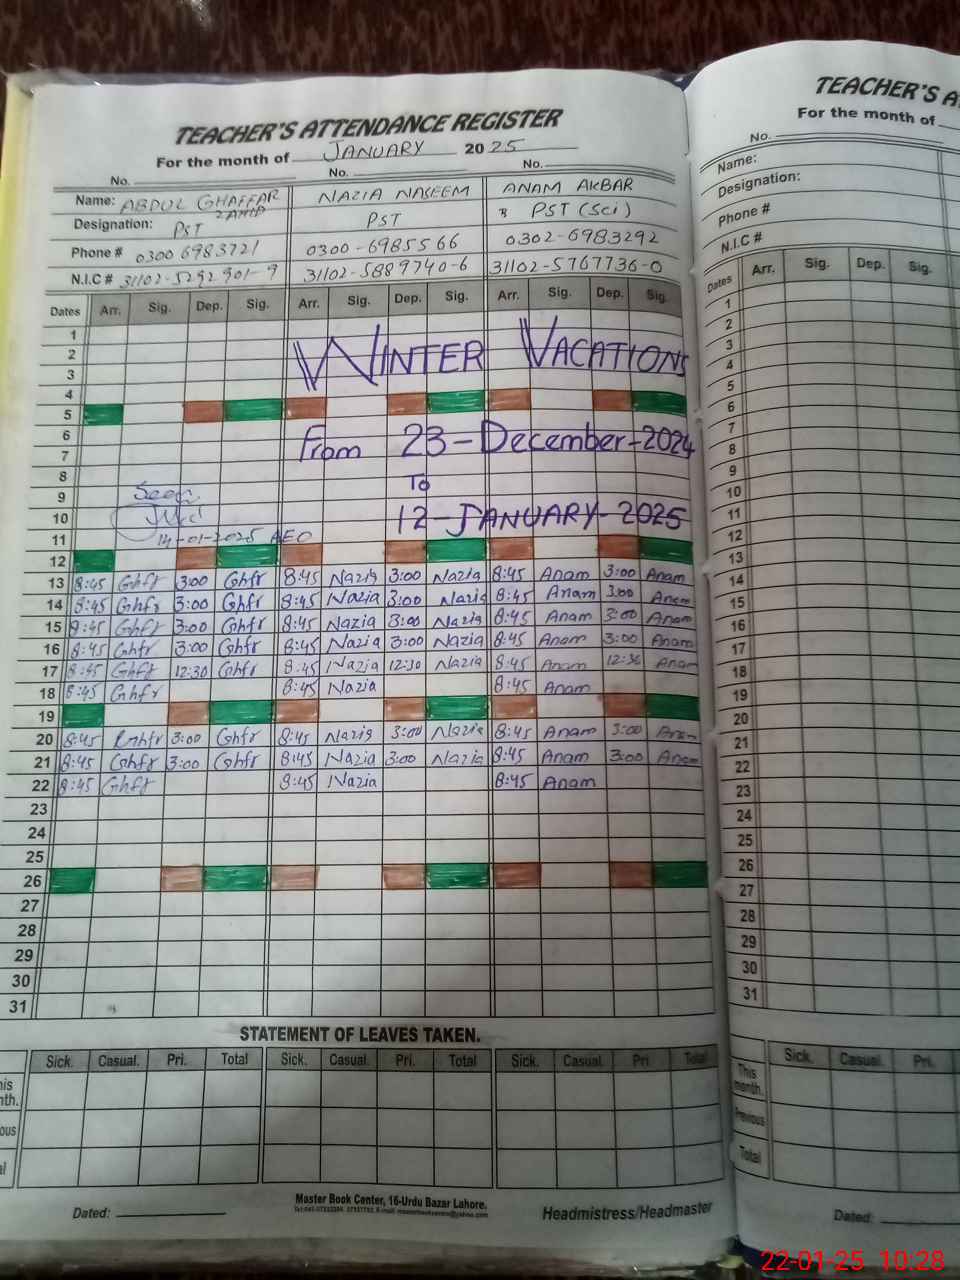 TEACHER'S ATTENDANCE REGISTER
For the month of JANUARY 2025
No. No. No.
Name: ABDUL GHAFFAR ZAHID NAZIA NASEEM ANAM AKBAR
Designation: PST PST PST (Sci)
Phone # 0300 6983721 0300-6985566 0302-6983292
N.I.C # 31102-5292901-9 31102-5889740-6 31102-5767736-0
Dates Arr. Sig. Dep. Sig. Arr. Sig. Dep. Sig. Arr. Sig. Dep. Sig.
1
2 WINTER VACATIONS
3
4
5
6 From 23-December-2024
7
8 To
9 Seen
10 12-JANUARY-2025
11 14-01-2025 AEO
12
13 8:45 Ghfr 3:00 Ghfr 8:45 Nazia 3:00 Nazia 8:45 Anam 3:00 Anam
14 8:45 Ghfr 3:00 Ghfr 8:45 Nazia 3:00 Nazia 8:45 Anam 3:00 Anam
15 8:45 Ghfr 3:00 Ghfr 8:45 Nazia 3:00 Nazia 8:45 Anam 3:00 Anam
16 8:45 Ghfr 3:00 Ghfr 8:45 Nazia 3:00 Nazia 8:45 Anam 3:00 Anam
17 8:45 Ghfr 12:30 Ghfr 8:45 Nazia 12:30 Nazia 8:45 Anam 12:30 Anam
18 8:45 Ghfr 8:45 Nazia 8:45 Anam
19
20 8:45 Ghfr 3:00 Ghfr 8:45 Nazia 3:00 Nazia 8:45 Anam 3:00 Anam
21 8:45 Ghfr 3:00 Ghfr 8:45 Nazia 3:00 Nazia 8:45 Anam 3:00 Anam
22 8:45 Ghfr 8:45 Nazia 8:45 Anam
23
24
25
26
27
28
29
30
31
STATEMENT OF LEAVES TAKEN.
Sick. Casual. Pri. Total Sick. Casual. Pri. Total Sick. Casual. Pri. Total
his
nth.
ous
al
Master Book Center, 16-Urdu Bazar Lahore.
Dated: Headmistress/Headmaster
TEACHER'S A
For the month of
No.
Name:
Designation:
Phone #
N.I.C #
Dates Arr. Sig. Dep. Sig.
1
2
3
4
5
6
7
8
9
10
11
12
13
14
15
16
17
18
19
20
21
22
23
24
25
26
27
28
29
30
31
Sick. Casual. Pri.
This
month.
Previous
Total
Dated:
22-01-25 10:28